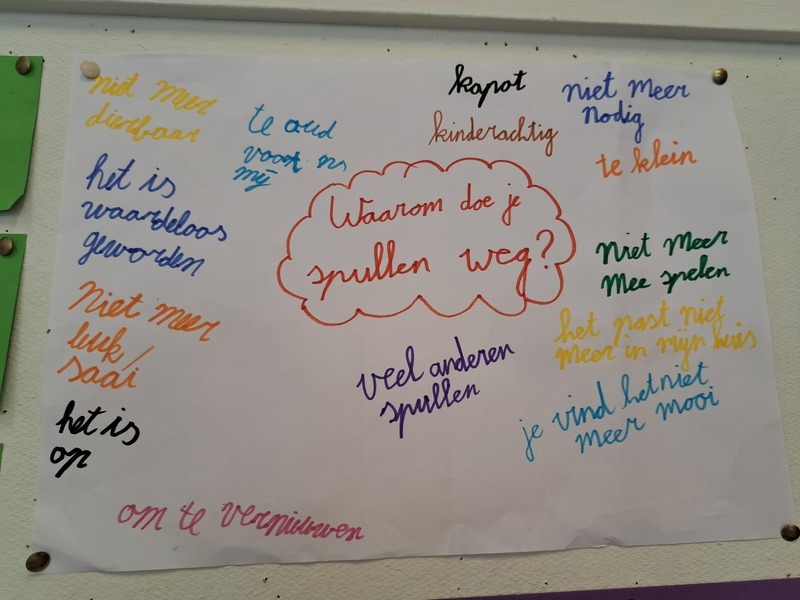 Waarom doe je
spullen weg?
niet meer
dierbaar
te oud
voor
mij
kapot
kinderachtig
niet meer
nodig
te klein
het is
waardeloos
geworden
niet meer
mee spelen
Niet meer
leuk/
saai
het past niet
meer in mijn huis
veel anderen
spullen
je vind het niet
meer mooi
het is
op
om te vernieuwen